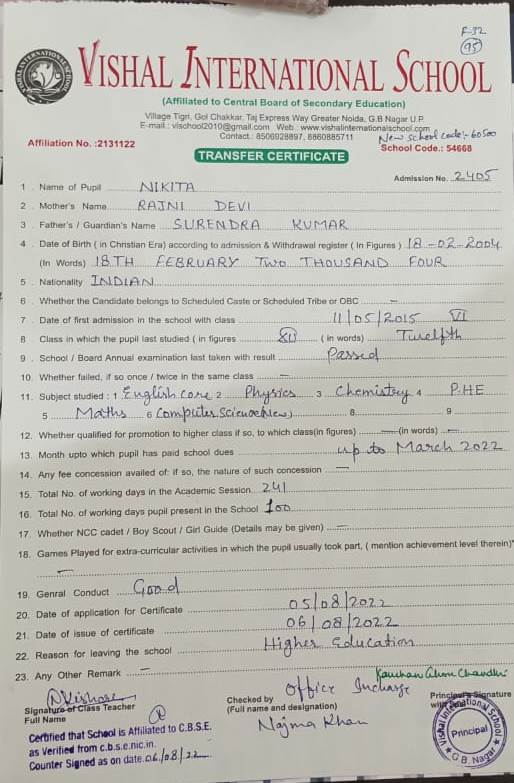 F-32
95
VISHAL INTERNATIONAL SCHOOL
VISHAL INTERNATIONAL SCHOOL
(Affiliated to Central Board of Secondary Education)
Village Tigri, Gol Chakkar, Taj Express Way Greater Noida, G.B Nagar U.P.
E-mail : vischool2010@gmail.com Web : www.vishalinternationalschool.com
Contact : 8506928897, 8860885711
New School Code:- 60500
Affiliation No. :2131122
School Code.: 54668
TRANSFER CERTIFICATE
Admission No. 2405
1 . Name of Pupil NIKITA
2 . Mother's Name RAJNI DEVI
3 . Father's / Guardian's Name SURENDRA KUMAR
4 . Date of Birth ( in Christian Era) according to admission & Withdrawal register ( In Figures ) 18-02-2004
(In Words) 18TH FEBRUARY TWO THOUSAND FOUR
5 . Nationality INDIAN
6 . Whether the Candidate belongs to Scheduled Caste or Scheduled Tribe or OBC —
7 . Date of first admission in the school with class 11/05/2015 VI
8 Class in which the pupil last studied ( in figures XII ( in words) Twelfth
9 . School / Board Annual examination last taken with result Passed
10. Whether failed, if so once / twice in the same class —
11. Subject studied : 1 English core 2 Physics 3 Chemistry 4 P.HE
5 Maths 6 Computer Science (New) 8 9
12. Whether qualified for promotion to higher class if so, to which class(in figures) — (in words) —
13. Month upto which pupil has paid school dues up to March 2022
14. Any fee concession availed of: if so, the nature of such concession —
15. Total No. of working days in the Academic Session 241
16. Total No. of working days pupil present in the School 100
17. Whether NCC cadet / Boy Scout / Girl Guide (Details may be given) —
18. Games Played for extra-curricular activities in which the pupil usually took part, ( mention achievement level therein)*
—
19. Genral Conduct Good
20. Date of application for Certificate 05/08/2022
21. Date of issue of certificate 06/08/2022
22. Reason for leaving the school Higher Education
23. Any Other Remark —
Signature of Class Teacher
Full Name
Checked by Office Incharge
(Full name and designation)
Najma Khan
Principal's Signature
Certified that School is Affiliated to C.B.S.E.
as Verified from c.b.s.e.nic.in.
Counter Signed as on date 06/08/22
Principal
G.B. Nagar